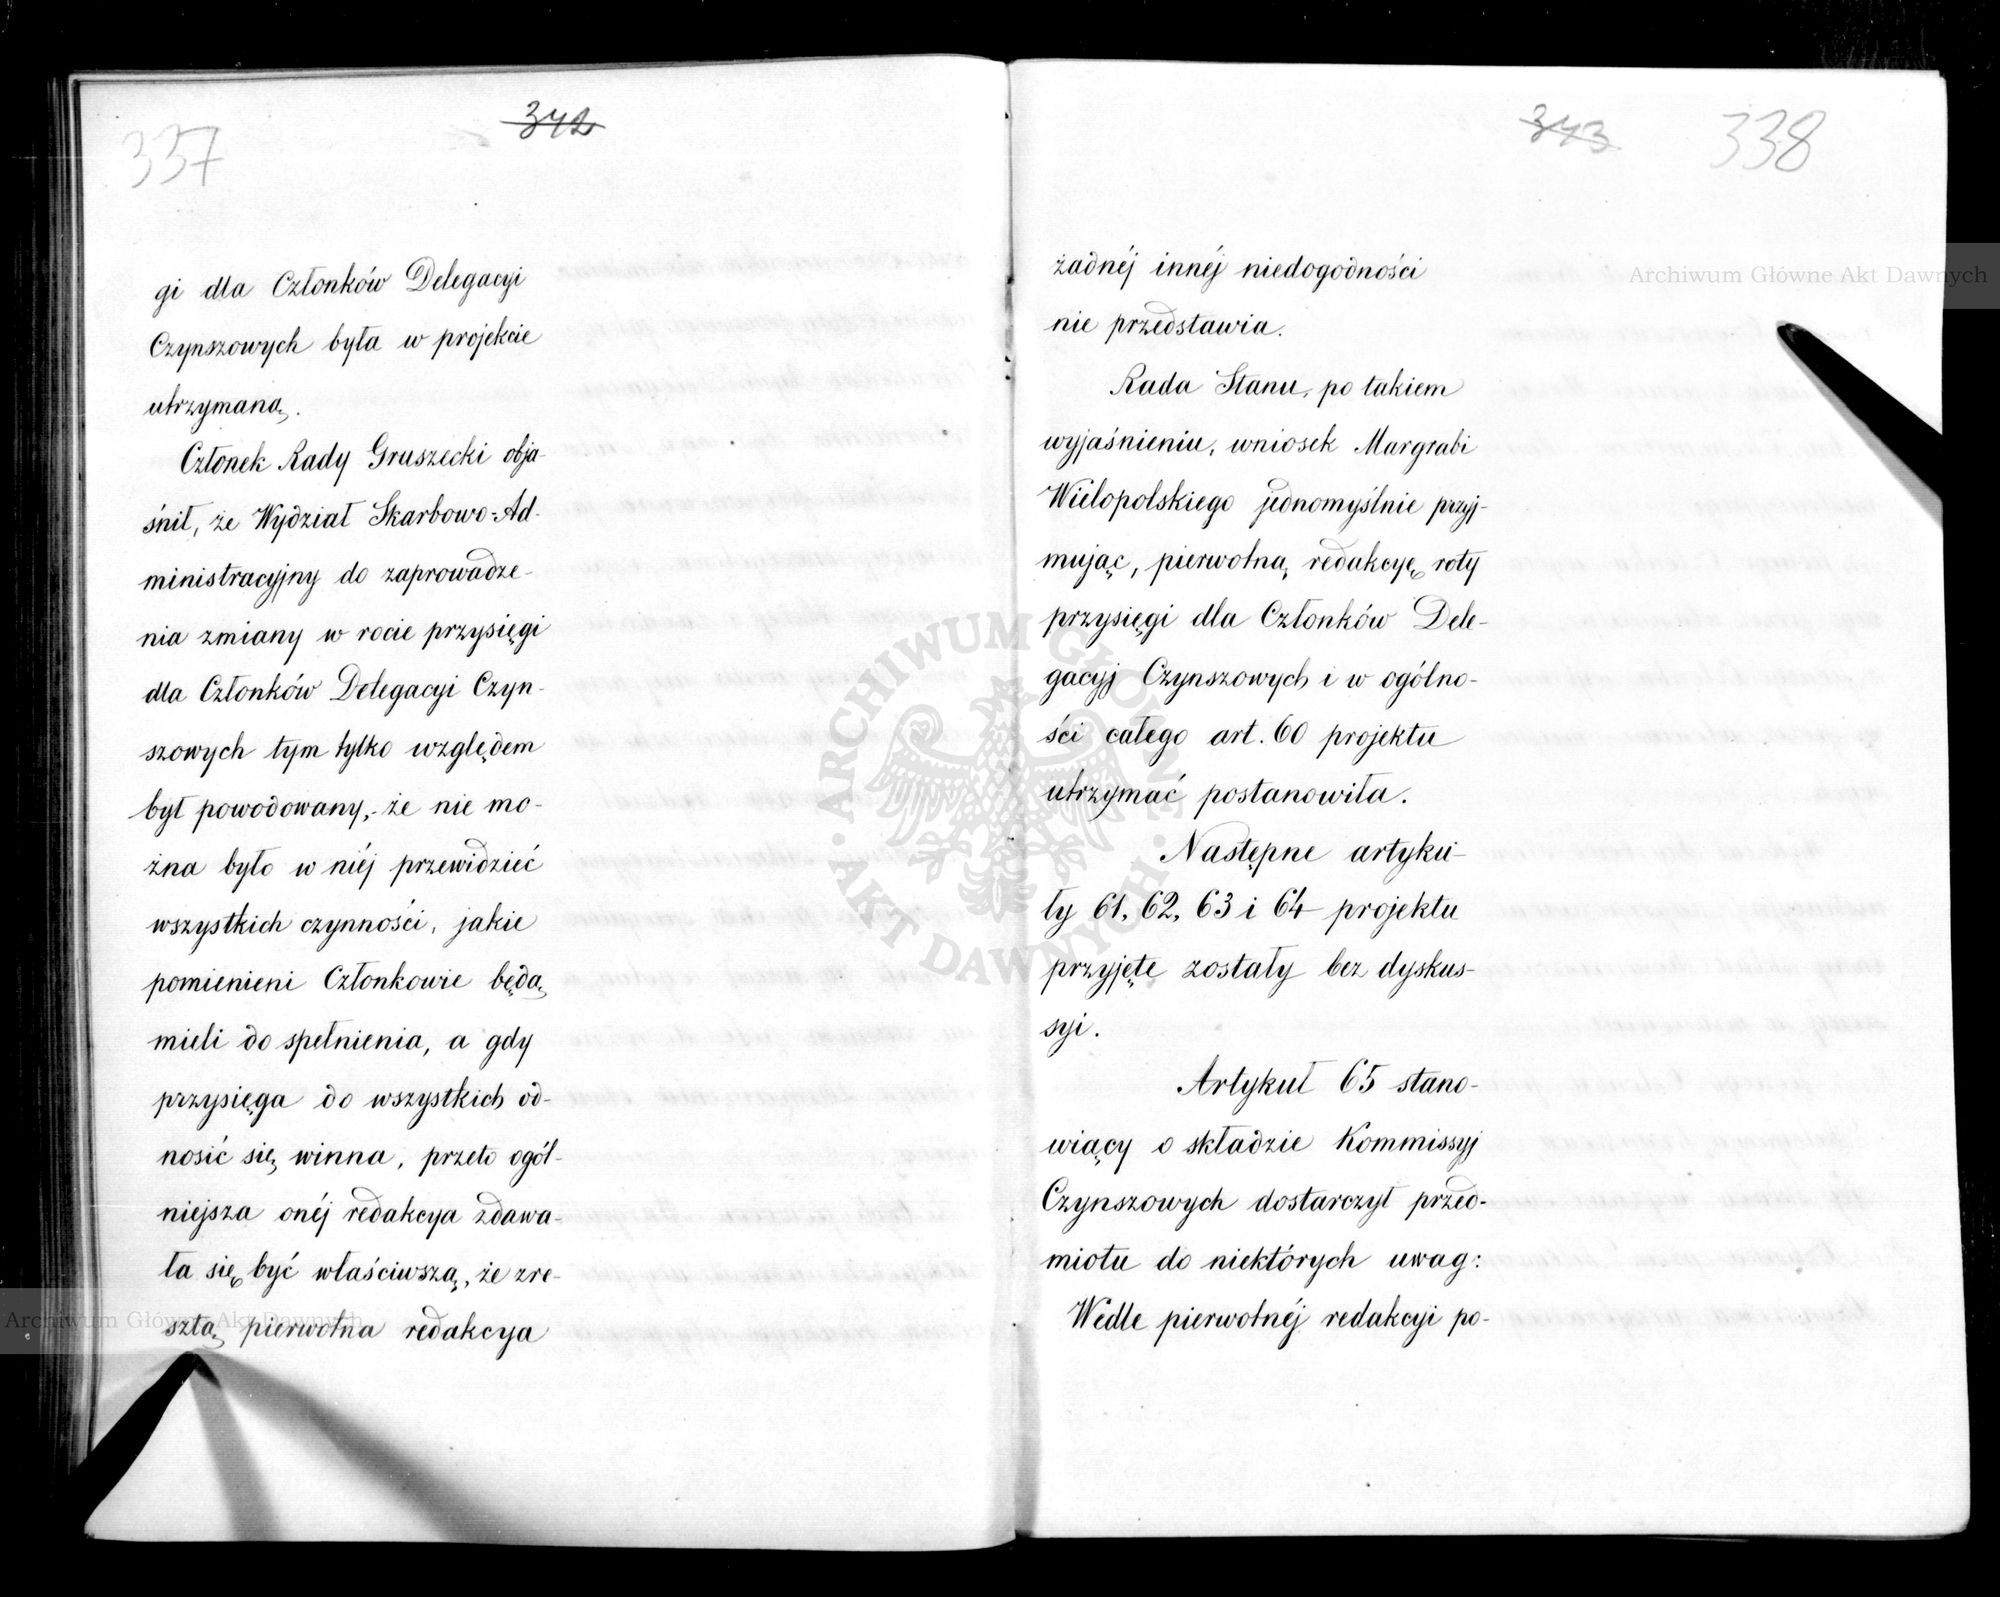 337
342
gi dla Członków Delegacyi
Czynszowych była w projekcie
utrzymaną.
Członek Rady Gruszecki obja-
śnił, że Wydział Skarbowo-Ad-
ministracyjny do zaprowadze-
nia zmiany w rocie przysięgi
dla Członków Delegacyi Czyn-
szowych tym tylko względem
był powodowany, że nie mo-
żna było w niéj przewidzieć
wszystkich czynności, jakie
pomienieni Członkowie będą
mieli do spełnienia, a gdy
przysięga do wszystkich od-
nosić się winna, przeto ogól-
niejsza onéj redakcya zdawa-
ła się być właściwszą, że zre-
sztą pierwotna redakcya
343
338
żadnéj innéj niedogodności
nie przedstawia.
Rada Stanu, po takiem
wyjaśnieniu, wniosek Margrabi
Wielopolskiego jednomyślnie przyj-
mując, pierwotną redakcyę roty
przysięgi dla Członków Dele-
gacyj Czynszowych i w ogólno-
ści całego art. 60 projektu
utrzymać postanowiła.
Następne artyku-
ły 61, 62, 63 i 64 projektu
przyjęte zostały bez dyskus-
syi.
Artykuł 65 stano-
wiący o składzie Kommissyj
Czynszowych dostarczył przed-
miotu do niektórych uwag:
Wedle pierwotnéj redakcyi po-
Archiwum Główne Akt Dawnych
Archiwum Główne Akt Dawnych
ARCHIWUM GŁÓWNE
AKT DAWNYCH